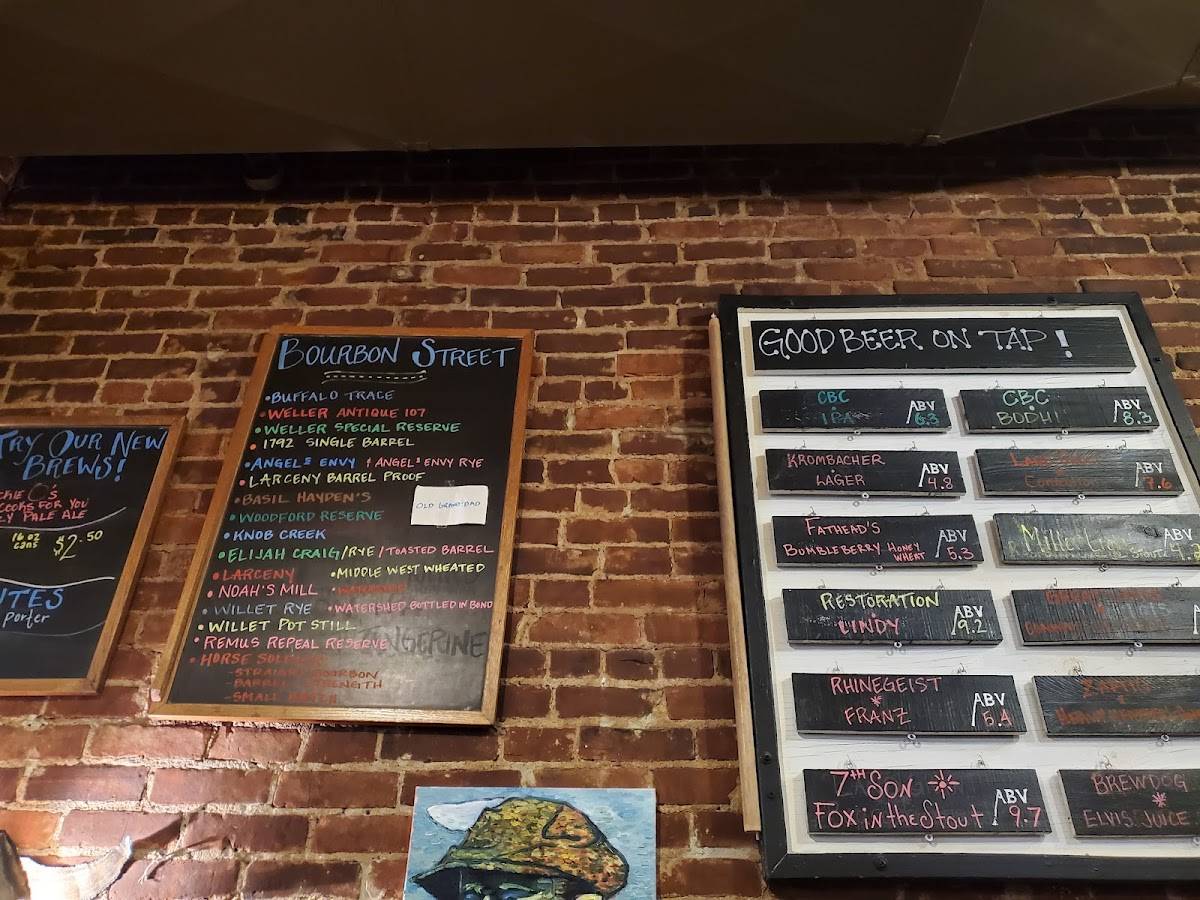 TRY OUR NEW
BREWS!
O's
COOKS FOR YOU
PALE ALE
16 OZ
CANS $2.50
Porter
BOURBON STREET
•BUFFALO TRACE
•WELLER ANTIQUE 107
•WELLER SPECIAL RESERVE
•1792 SINGLE BARREL
•ANGELS ENVY † ANGELS ENVY RYE
•LARCENY BARREL PROOF
•BASIL HAYDEN'S
OLD GRANDDAD
•WOODFORD RESERVE
•KNOB CREEK
•ELIJAH CRAIG/RYE/TOASTED BARREL
•LARCENY •MIDDLE WEST WHEATED
•NOAH'S MILL
•WILLET RYE •WATERSHED BOTTLED IN BOND
•WILLET POT STILL
•REMUS REPEAL RESERVE
•HORSE
-STRAIGHT BOURBON
-BARREL STRENGTH
-SMALL
GOOD BEER ON TAP!
CBC
IPA ABV 6.3
CBC
BODHI ABV 8.3
KROMBACHER
LAGER ABV 4.8
ABV 7.6
FATHEAD'S
BUMBLEBERRY HONEY WHEAT ABV 5.3
Miller Lite ABV
RESTORATION
LINDY ABV 9.2
RHINEGEIST
FRANZ ABV 5.4
7TH SON
FOX in the Stout ABV 9.7
BREWDOG
ELVIS JUICE